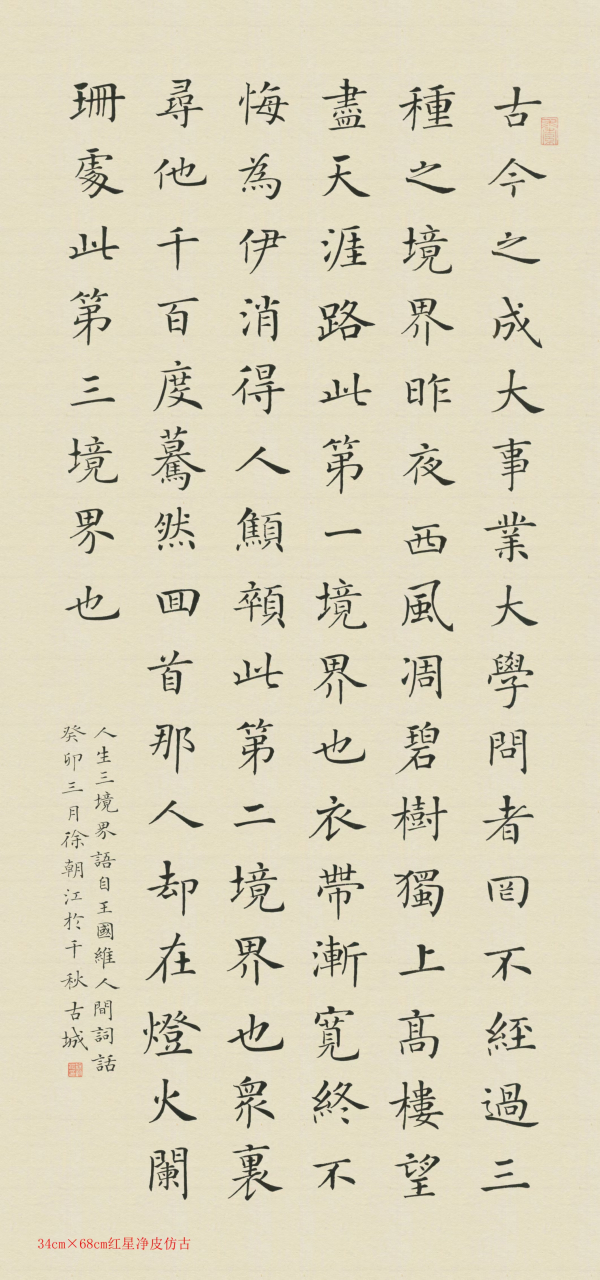 古今之成大事業大學問者罔不經過三
種之境界昨夜西風凋碧樹獨上髙樓望
盡天涯路此第一境界也衣帶漸寬終不
悔為伊消得人顦顇此第二境界也衆裏
尋他千百度驀然囬首那人却在燈火闌
珊處此第三境界也
人生三境界語自王國維人間詞話
癸卯三月徐朝江於千秋古城
34cm×68cm红星净皮仿古